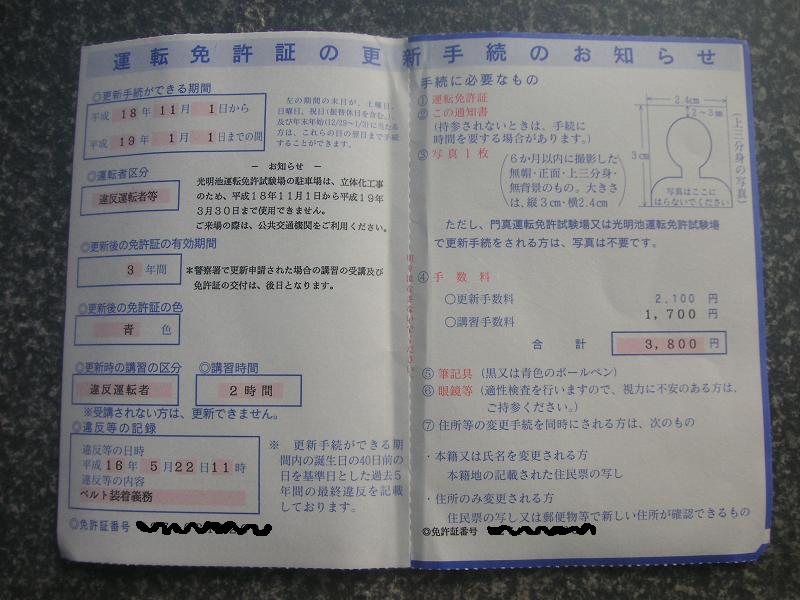 運転免許証の更新手続のお知らせ
◎更新手続ができる期間
平成 18年 11月 1日から
平成 19年 1月 1日までの間
左の期間の末日が、土曜日、
日曜日、祝日(振替休日を含む。)
及び年末年始(12/29〜1/3)に当たる
方は、これらの日の翌日まで手続
することができます。
◎運転者区分
違反運転者等
― お知らせ ―
光明池運転免許試験場の駐車場は、立体化工事
のため、平成18年11月1日から平成19年
3月30日まで使用できません。
ご来場の際は、公共交通機関をご利用ください。
◎更新後の免許証の有効期間
3 年間
*警察署で更新申請された場合の講習の受講及び
免許証の交付は、後日となります。
◎更新後の免許証の色
青 色
◎更新時の講習の区分
違反運転者
◎講習時間
2時間
※受講されない方は、更新できません。
◎違反等の記録
違反等の日時
平成16年 5月22日11時
違反等の内容
ベルト装着義務
※ 更新手続ができる期
間内の誕生日の40日前の
日を基準日とした過去5
年間の最終違反を記載
しております。
◎免許証番号
手続に必要なもの
① 運転免許証
② この通知書
(持参されないときは、手続に
時間を要する場合があります。)
③ 写真1枚
6か月以内に撮影した
無帽・正面・上三分身・
無背景のもの。大きさ
は、縦3cm・横2.4cm
2.4cm
2〜3mm
3cm
写真はここに
はらないでください
(上三分身の写真)
ただし、門真運転免許試験場又は光明池運転免許試験場
で更新手続をされる方は、写真は不要です。
④ 手数料
○更新手数料 2,100 円
○講習手数料 1,700 円
合計 3,800 円
⑤ 筆記具 (黒又は青色のボールペン)
⑥ 眼鏡等 (適性検査を行いますので、視力に不安のある方は、
ご持参ください。)
⑦ 住所等の変更手続を同時にされる方は、次のもの
・本籍又は氏名を変更される方
本籍地の記載された住民票の写し
・住所のみ変更される方
住民票の写し又は郵便物等で新しい住所が確認できるもの
◎免許証番号